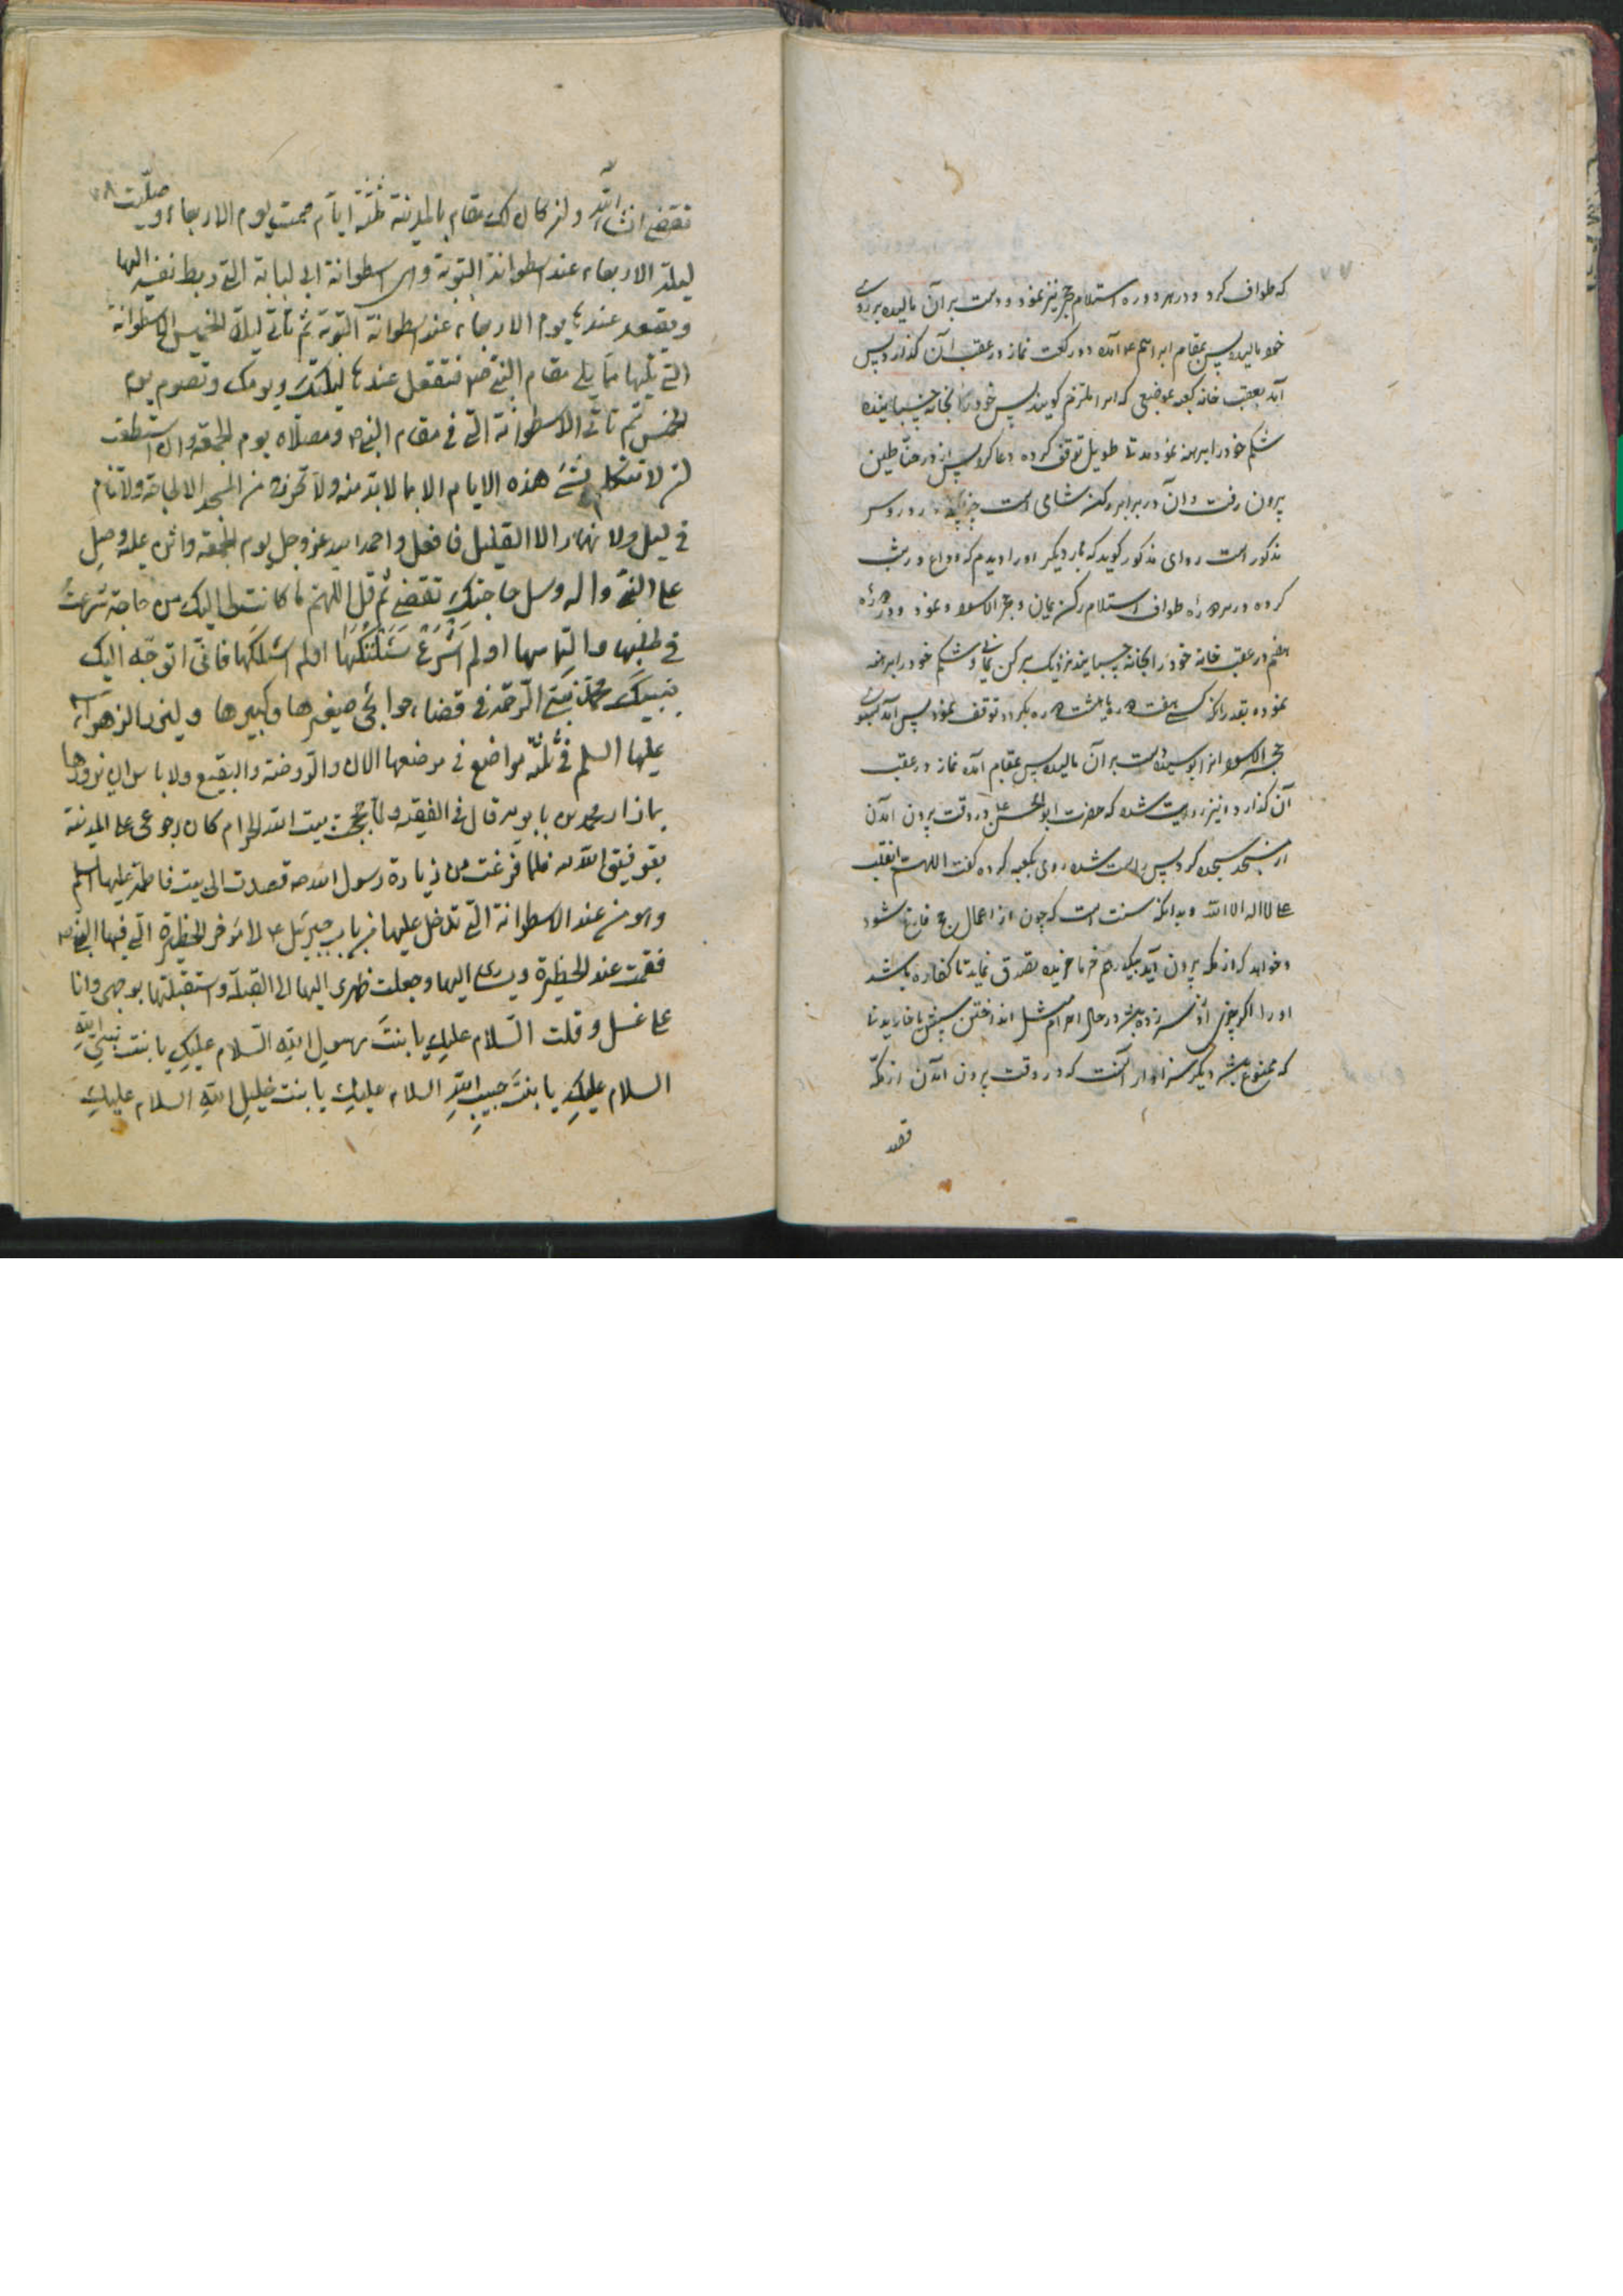 ۷۷
که طواف کرد و در هر دوره استلام حجر نیز نمود و دست بر آن مالیده بر روی
خود مالید پس بمقام ابراهیم ع آمده دو رکعت نماز در عقب آن گذارد پس
آمد بعقب خانه کعبه بموضعی که انرا ملتزم گویند پس خود را بخانه چسبانیده
شکم خود را برهنه نمود مدتی طویل توقف کرده دعا کرد پس از در حناطین
بیرون رفت و آن در برابر رکن شامی است چنانچه در دروس
مذکور است راوی مذکور گوید که بار دیگر او را دیدم که وداع در شب
کرده در هر دوره طواف استلام رکن یمانی و حجر الاسود نمود و در دوره
هفتم در عقب خانه خود را بخانه چسبانید نزدیک برکن یمانی و شکم خود را برهنه
نموده بقدر آنکه کسی هفت دوره یا هشت دوره بگردد توقف نمود پس آمد بسوی
حجر الاسود انرا بوسیده دست بر آن مالید پس بمقام آمده نماز در عقب
آن گذارد و نیز روایت شده که حضرت ابو الحسن ع در وقت بیرون آمدن
از مسجد سجده کرد پس راست شده روی بکعبه کرده گفت اللهم انی انقلب
علی لا اله الا الله و بدانکه سنت است که چون از اعمال حج فارغ شود
و خواهد که از مکه بیرون آید بیکدرهم خرما خریده تصدق نماید تا کفاره باشد
او را اگر چیزی ازو سر زده باشد در حال احرام مثل انداختن شپش یا خاریدن
که ممنوع باشد دیگر سزاوار آنست که در وقت بیرون آمدن از مکه
قصد
۷۸
تقضی انشاء الله و ان کان لک مقام بالمدینة ثلثة ایام صمت یوم الاربعاء و صلیت
لیلة الاربعاء عند اسطوانة التوبة وهی اسطوانة ابی لبابة التی ربط نفسه الیها
و تقعد عندها یوم الاربعاء عند اسطوانة التوبة ثم تأتی لیلة الخمیس الاسطوانة
التی تلیها مما یلی مقام النبی ص فتقعد عندها لیلتک و یومک و تصوم یوم
الخمیس ثم تأتی الاسطوانة التی فی مقام النبی ص و مصلاه یوم الجمعة و ان استطعت
ان لا تتکلم بشیء هذه الایام الا بما لابد منه و لا تخرج من المسجد الا لحاجة و لا تنام
فی لیل و لا نهار الا القلیل فافعل و احمد الله عز و جل یوم الجمعة و اثن علیه و صل
علی النبی و اله و سل حاجتک تقضی ثم قل اللهم ما کانت لی الیک من حاجة شرعت
فی طلبها و التماسها او لم اشرع سئلتکها او لم اسئلکها فانی اتوجه الیک
بنبیک محمد نبی الرحمة فی قضاء حوائجی صغیرها و کبیرها و لیزر الزهراء
علیها السلم فی ثلثة مواضع فی موضعها الان و الروضة و البقیع و لا باس ان نزورها
بما زار محمد بن بابویه قال فی الفقیه و لما حججت بیت الله الحرام کان رجوعی علی المدینة
بتوفیق الله فلما فرغت من زیارة رسول الله ص قصدت الی بیت فاطمة علیها السلم
و هو من عند الاسطوانة التی تدخل علیها من باب جبرئیل ع الی مؤخر الحظیرة التی فیها النبی ص
فقمت عند الحظیرة و یساری الیها و جعلت ظهری الی القبلة و استقبلتها بوجهی و انا
علی غسل و قلت السلام علیک یا بنت رسول الله السلام علیک یا بنت نبی الله
السلام علیک یا بنت حبیب الله السلام علیک یا بنت خلیل الله السلام علیک